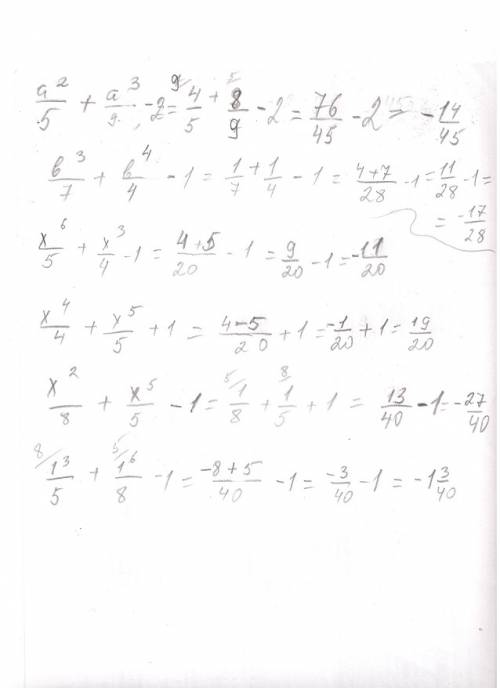 a²/5 + a³/9 - 2 = 4/5 + 8/9 - 2 = 76/45 - 2 = -14/45
в³/7 + в⁴/4 - 1 = 1/7 + 1/4 - 1 = 4+7/28 - 1 = 11/28 - 1 =
= -17/28
x⁶/5 + x³/4 - 1 = 4+5/20 - 1 = 9/20 - 1 = -11/20
x⁴/4 + x⁵/5 + 1 = 4-5/20 + 1 = -1/20 + 1 = 19/20
x²/8 + x⁵/5 - 1 = 1/8 + 1/5 + 1 = 13/40 - 1 = -27/40
1³/5 + 1⁶/8 - 1 = -8+5/40 - 1 = -3/40 - 1 = -1 3/40